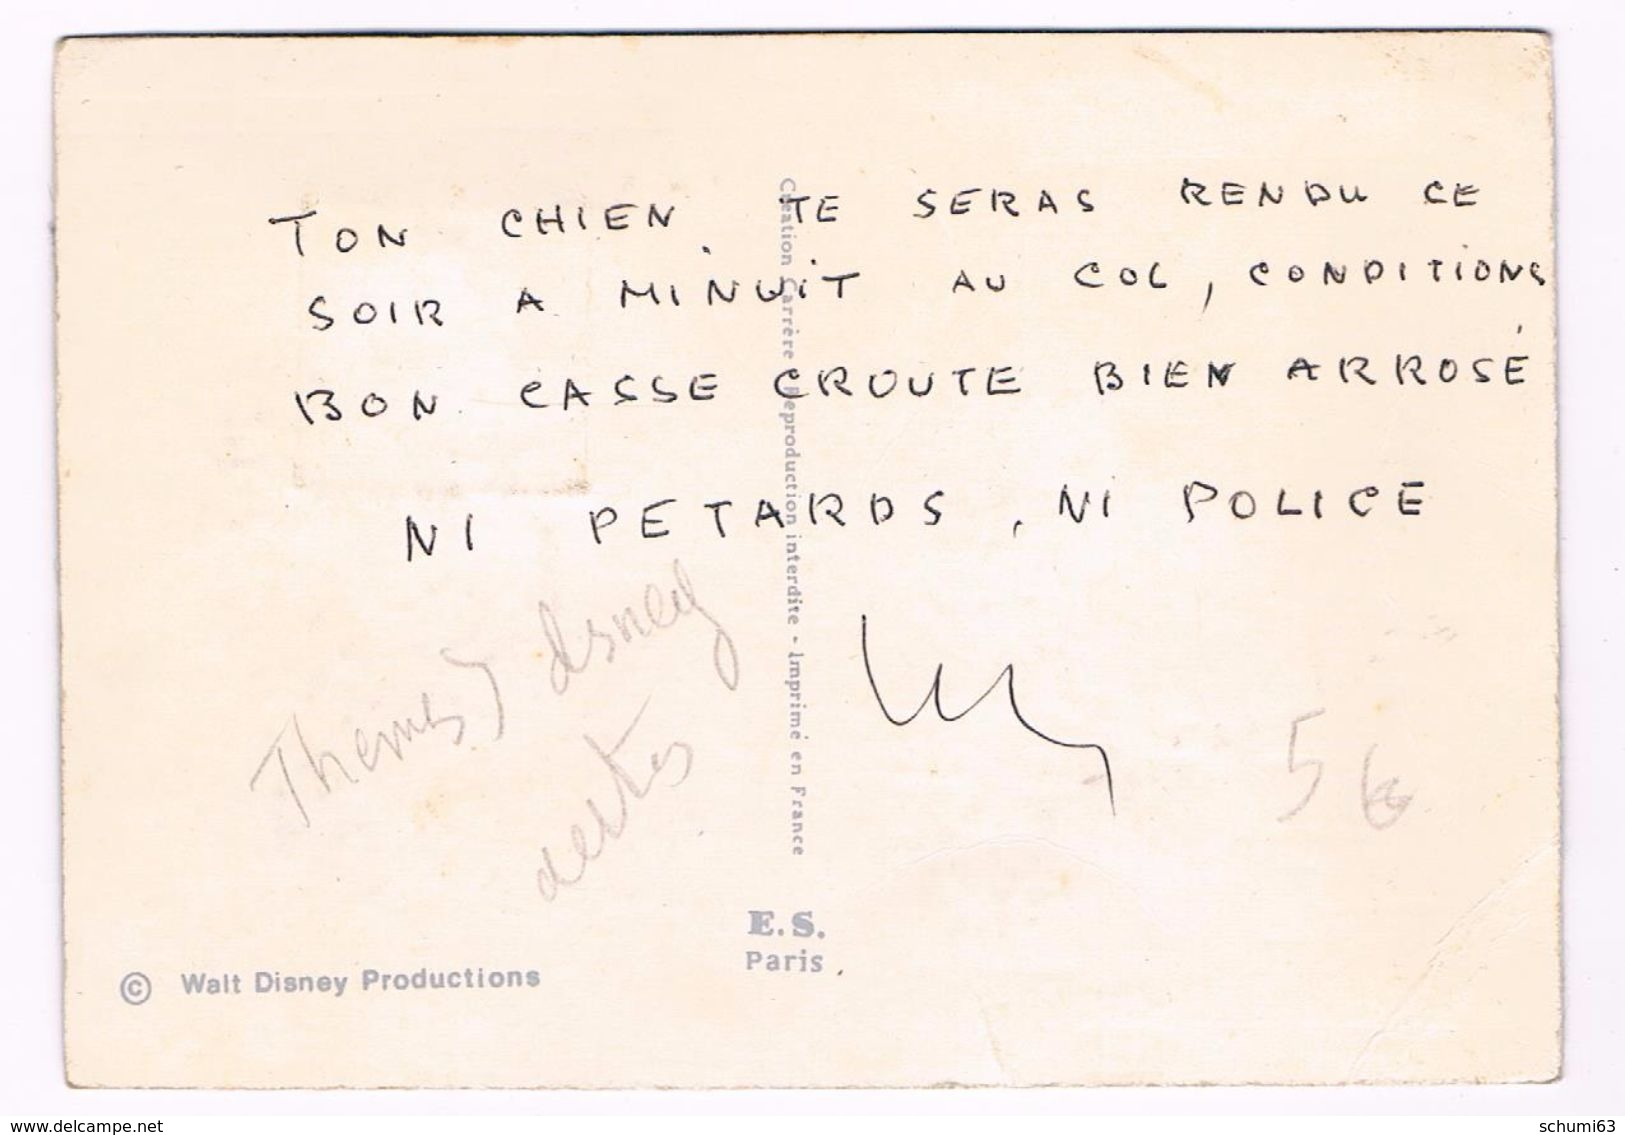 TON CHIEN TE SERAS RENDU CE
SOIR A MINUIT AU COL, CONDITIONS
BON CASSE CROUTE BIEN ARROSÉ
NI PETARDS, NI POLICE
Création Carrère Reproduction interdite - Imprimé en France
disney
5
E.S.
Paris
© Walt Disney Productions
www.delcampe.net
schumi63